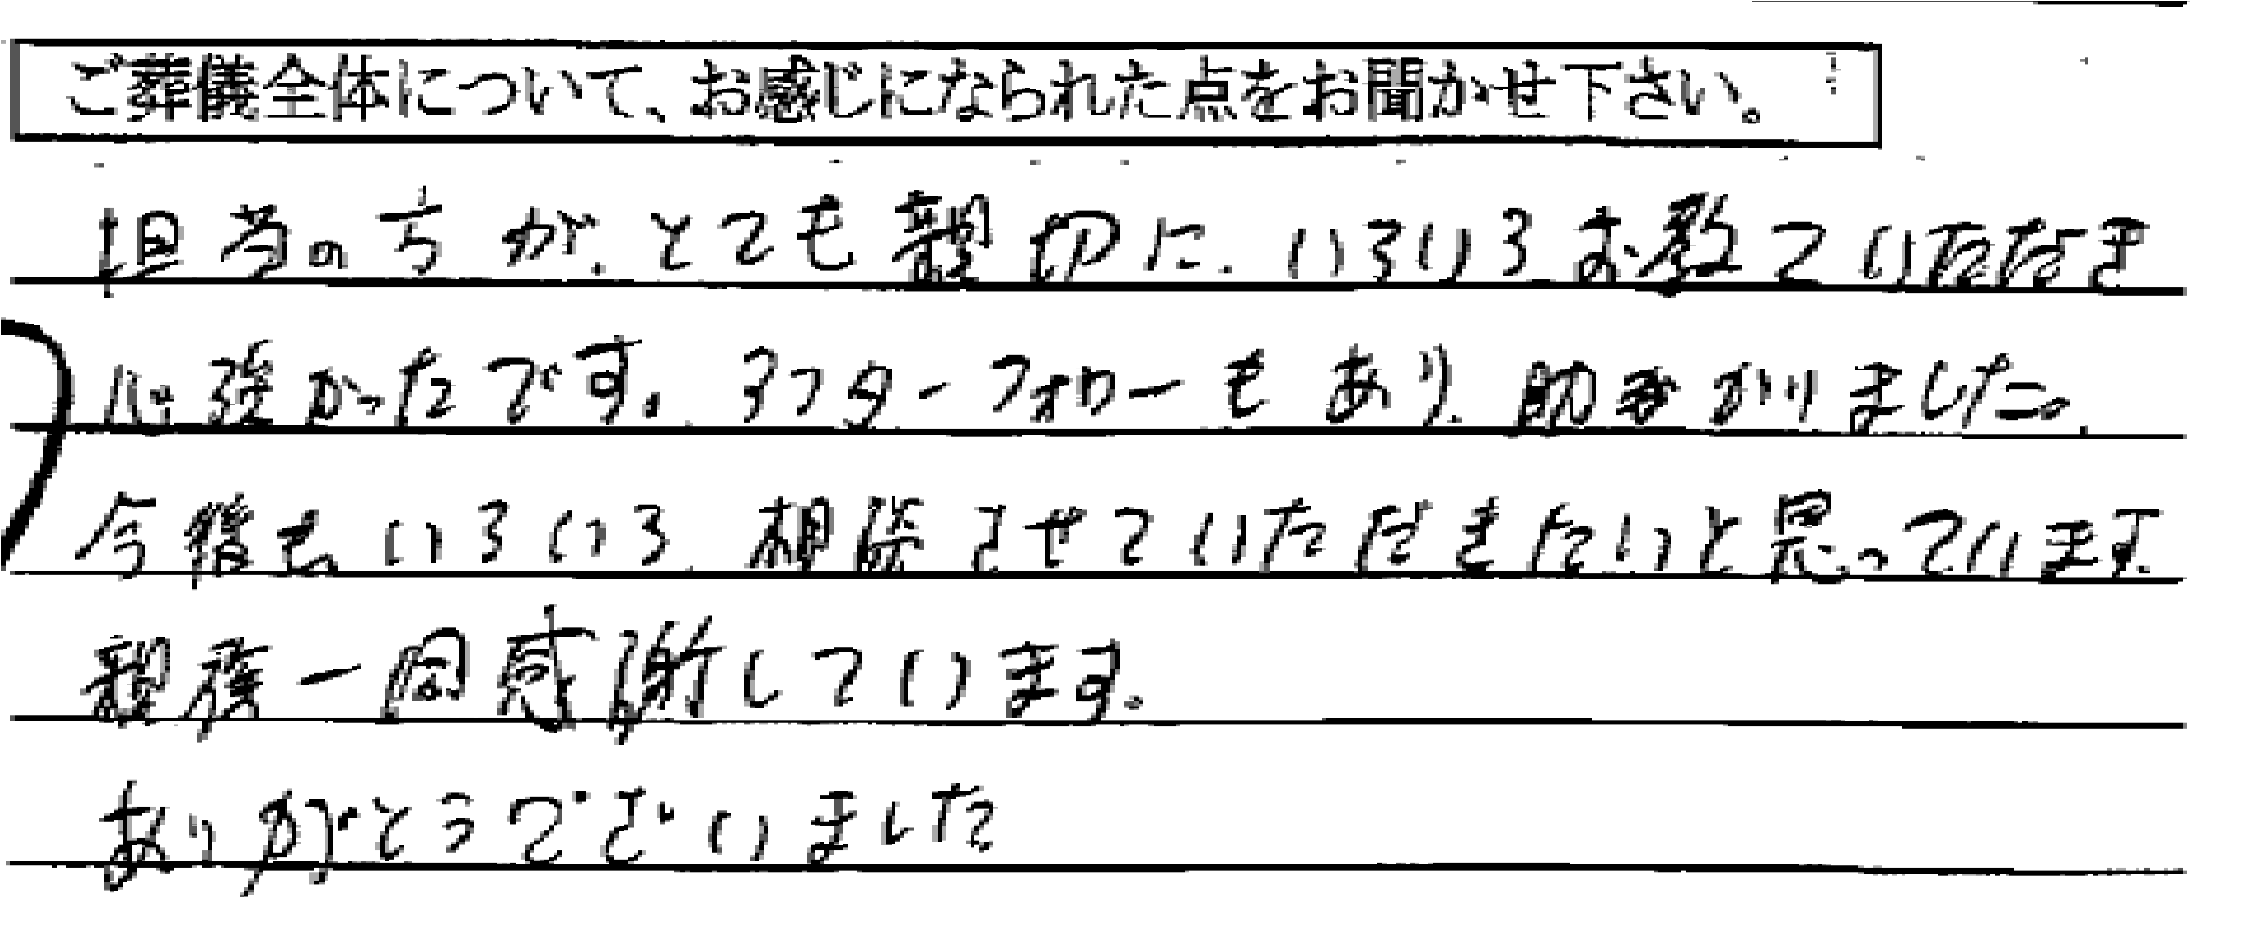 ご葬儀全体について、お感じになられた点をお聞かせ下さい。
担当の方が、とても親切に、いろいろお教ていただき
心強かったです。アフターフォローもあり、助かりました。
今後もいろいろ、相談させていただきたいと思っています。
親族一同感謝しています。
ありがとうございました